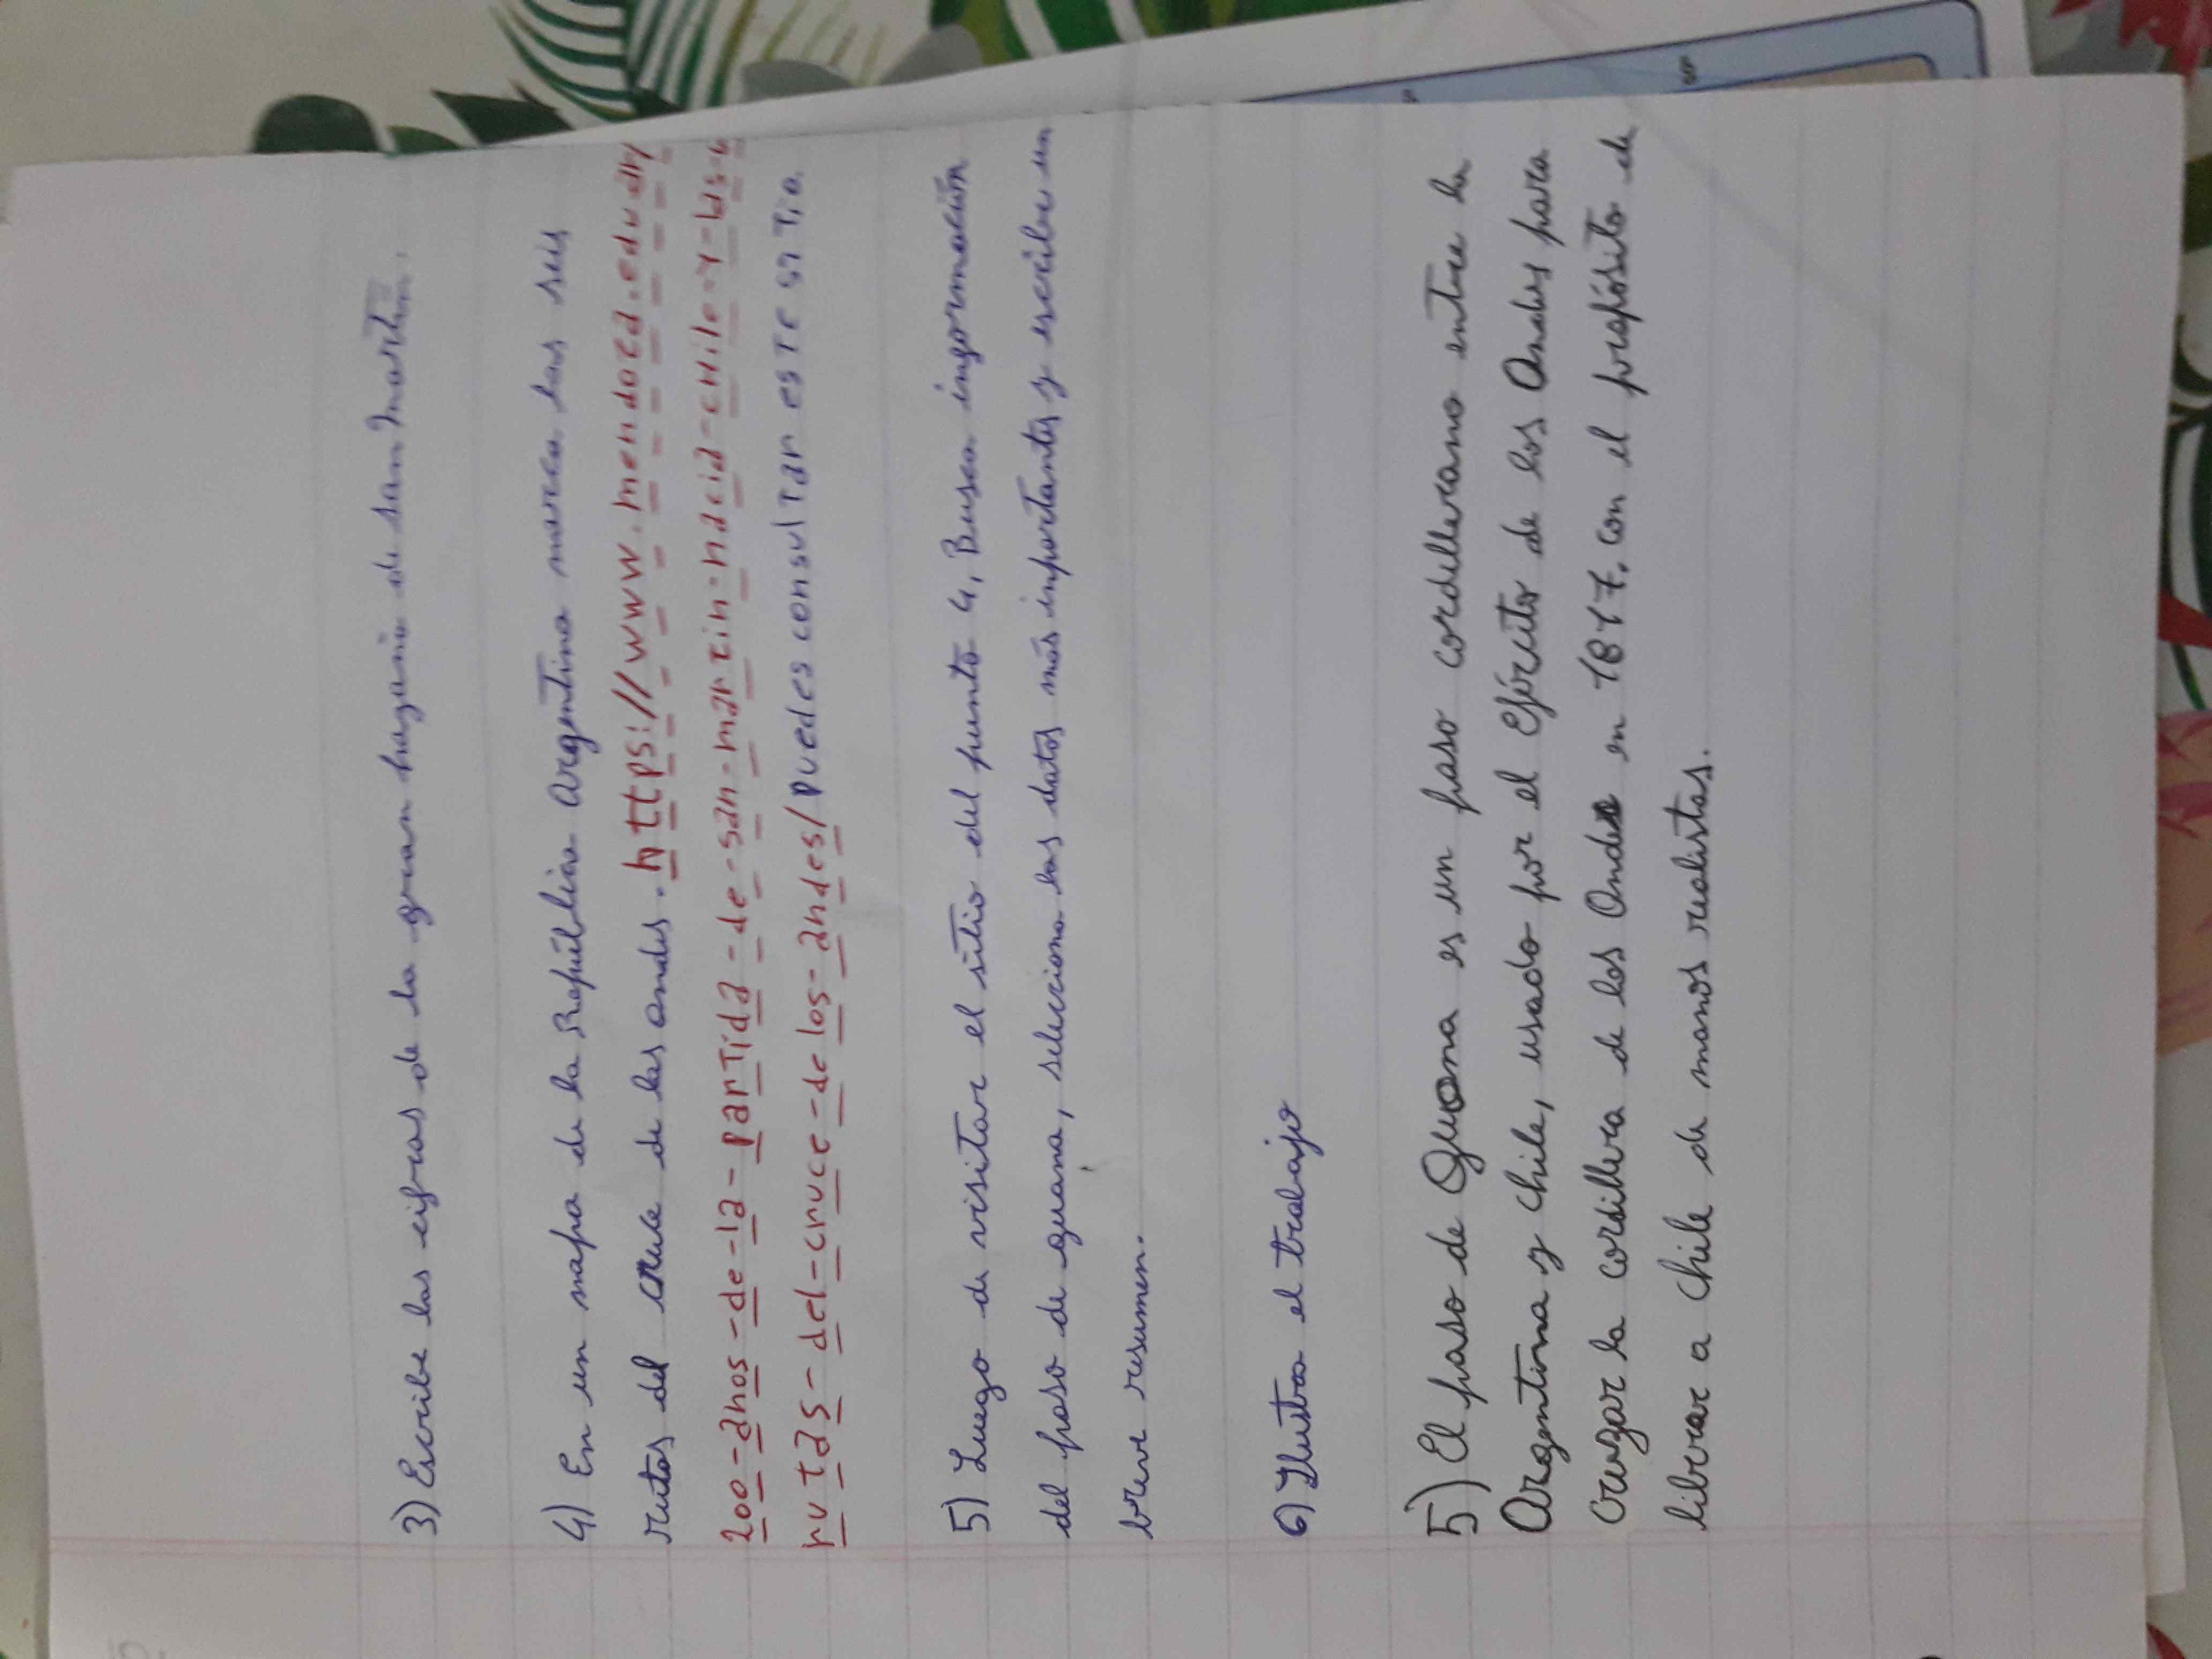 3) Escribe las cifras de la gran hazaña de san Martín.
4) En un mapa de la República Argentina marca las seis
rutas del cruce de los andes. https://www.mendoza.edu.ar/
200-años-de-la-partida-de-san-martin-hacia-chile-y-las-6
rutas-del-cruce-de los-andes/ puedes consultar este sitio
5) Luego de visitar el sitio del punto 4, Busca información
del paso de guana, selecciona los datos más importantes y escribe un
breve resumen.
6) Ilustra el trabajo
5) El paso de Guana es un paso cordillerano entre la
Argentina y Chile, usado por el Ejército de los Andes para
cruzar la cordillera de los Andes en 1817. con el propósito de
librar a Chile de manos realistas.